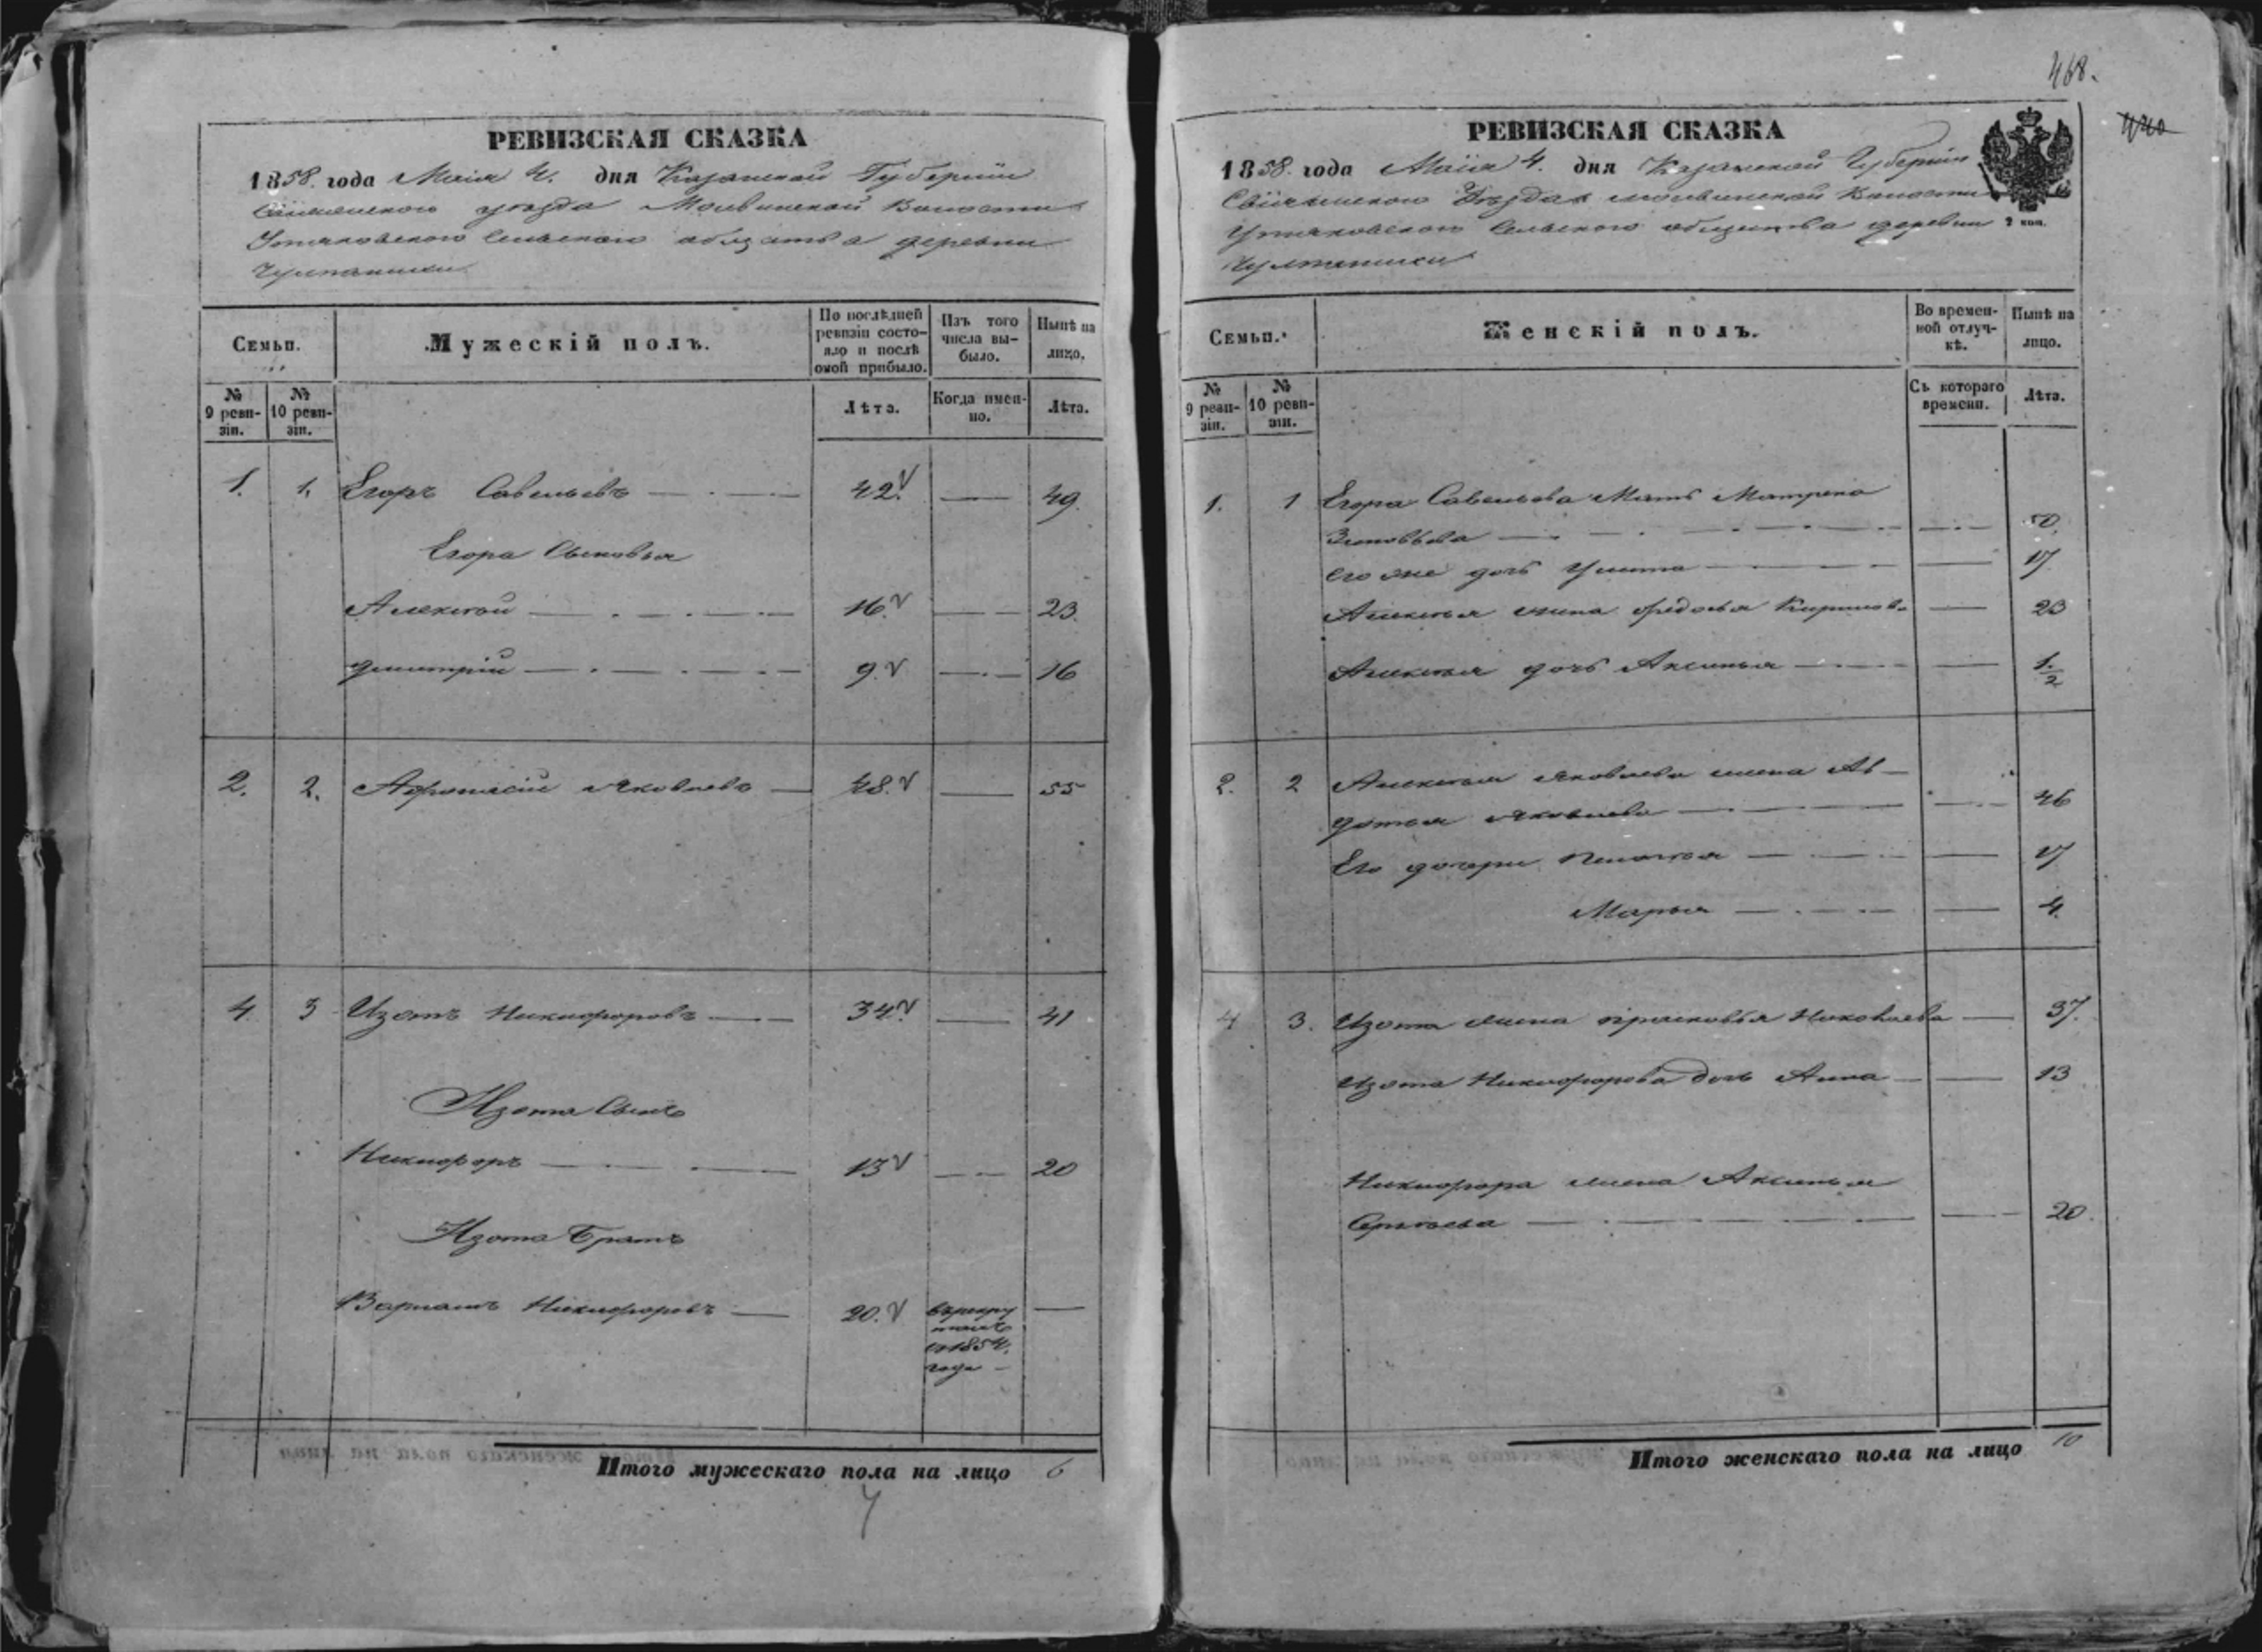 РЕВИЗСКАЯ СКАЗКА
1858. года Маія 4. дня Казанской Губерніи
Свіяжскаго уѣзда Молвинской Волости
Утяковскаго Сельскаго общества деревни
Семьи.
Мужескій полъ.
По послѣдней ревизіи состояло и послѣ оной прибыло.
Изъ того числа выбыло.
Нынѣ на лицо.
№ 9 ревизіи.
№ 10 ревизіи.
Лѣта.
Когда именно.
Лѣта.
1. 1. Егоръ Савельевъ 42. 49.
Егора Сыновья
Алексѣй 16. 23.
Димитрій 9. 16
2. 2. Афонасій Яковлевъ 48. 55
4 3 Изотъ Никифоровъ 34. 41
Изота Сынъ
Никифоръ 13 20
Изота Братъ
Варламъ Никифоровъ 20. въ рекру
тахъ
съ 1854.
года
Итого мужескаго пола на лицо 6
7
468.
440
РЕВИЗСКАЯ СКАЗКА
1858. года Маія 4. дня Казанской Губерніи
Свіяжскаго Уѣзда Молвинской Волости
Утяковскаго Сельскаго общества деревни
2 коп.
Семьи.
Женскій полъ.
Во временной отлучкѣ.
Нынѣ на лицо.
№ 9 ревизіи.
№ 10 ревизіи.
Съ котораго времени.
Лѣта.
1. 1 Егора Савельева Мать Матрена
Зиновьева 50.
его же дочь Улита 17
Алексѣя жена Федосья Кирилова 23
Алексѣя дочь Аксинья 1/2
2. 2 Яковлева жена Ав-
дотья Яковлева 46
Его дочери Пелагея 17
Марья 4.
4 3. Изота жена Прасковья Николаева 37.
Изота Никифорова дочь Анна 13
Никифора жена Аксинья
Сергѣева 20.
Итого женскаго пола на лицо 10